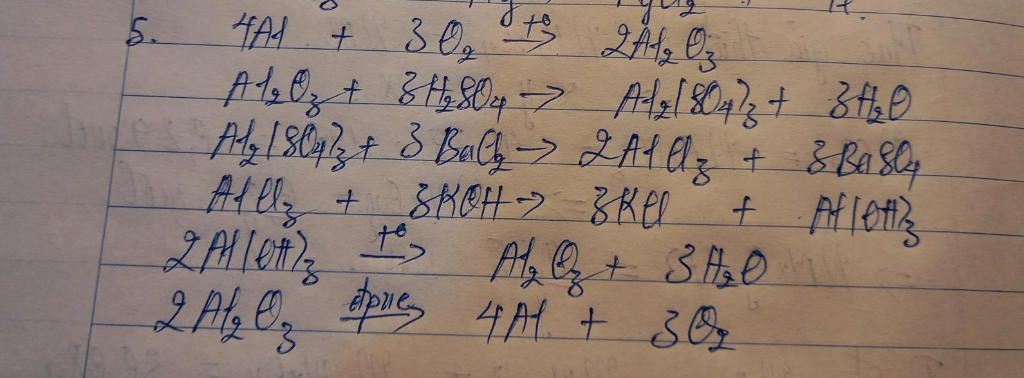 5. 4Al + 3O₂ t° → 2Al₂O₃
Al₂O₃ + 3H₂SO₄ → Al₂(SO₄)₃ + 3H₂O
Al₂(SO₄)₃ + 3BaCl₂ → 2AlCl₃ + 3BaSO₄
AlCl₃ + 3KOH → 3KCl + Al(OH)₃
2Al(OH)₃ t° → Al₂O₃ + 3H₂O
2Al₂O₃ đpnc → 4Al + 3O₂